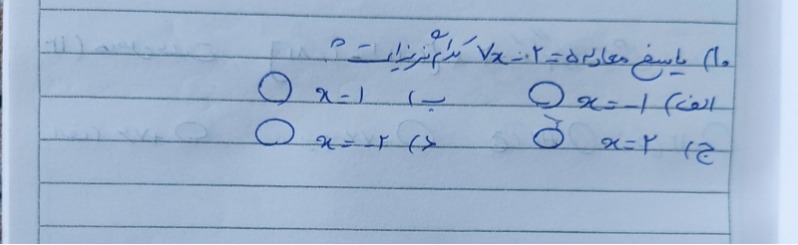 ۱۰) پاسخ معادله ۵=۲-۷x کدام گزینه است؟
الف) x=-۱ ب) x=۱
ج) x=۲ د) x=-۲